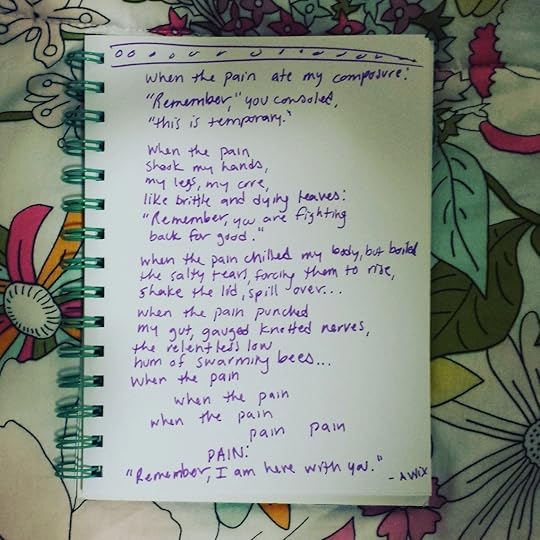 when the pain ate my composure:
"Remember," you consoled,
"this is temporary."
when the pain
shook my hands,
my legs, my core,
like brittle and dying leaves:
"Remember, you are fighting
back for good."
when the pain chilled my body, but boiled
the salty tears, forcing them to rise,
shake the lid, spill over...
when the pain punched
my gut, gauged knotted nerves,
the relentless low
hum of swarming bees...
when the pain
when the pain
when the pain
pain pain
PAIN:
"Remember, I am here with you."
- A Wix